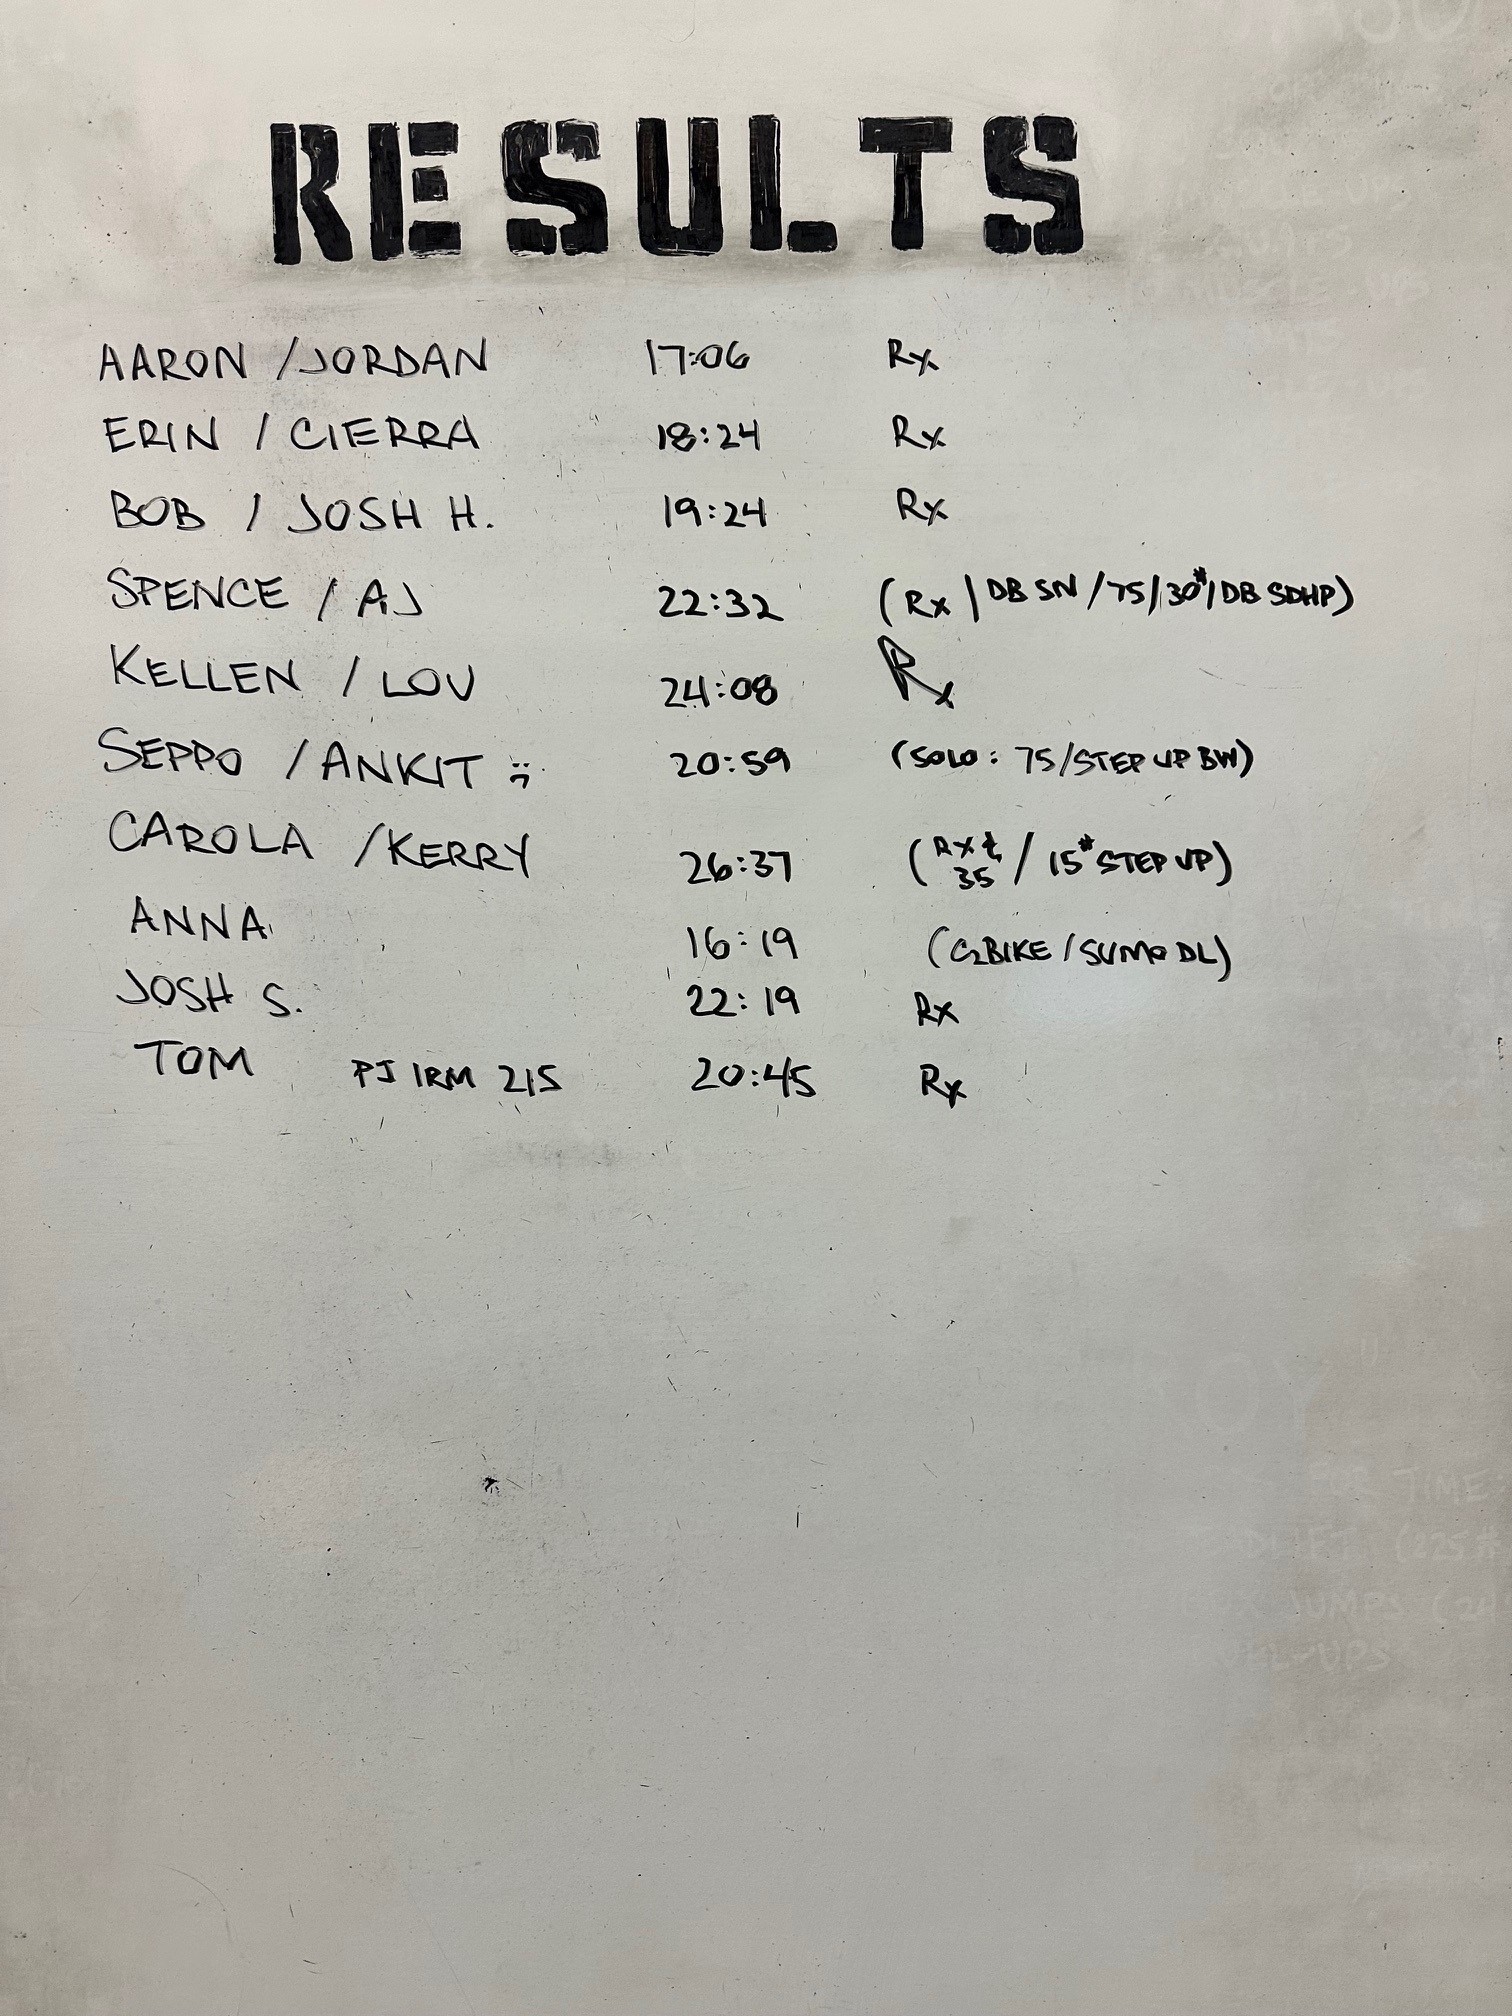 RESULTS
AARON / JORDAN 17:06 Rx
ERIN / CIERRA 18:24 Rx
BOB / JOSH H. 19:24 Rx
SPENCE / AJ 22:32 (Rx | DB SN / 75 / 30# / DB SDHP)
KELLEN / LOU 24:08 Rx
SEPPO / ANKIT :( 20:59 (SOLO: 75/STEP UP BW)
CAROLA / KERRY 26:37 (Rx & 35 / 15# STEP UP)
ANNA 16:19 (C2BIKE / SUMO DL)
JOSH S. 22:19 Rx
TOM PJ 1RM 215 20:45 Rx
MUSCLE-UPS
FOR TIME:
(225#
JUMPS (24